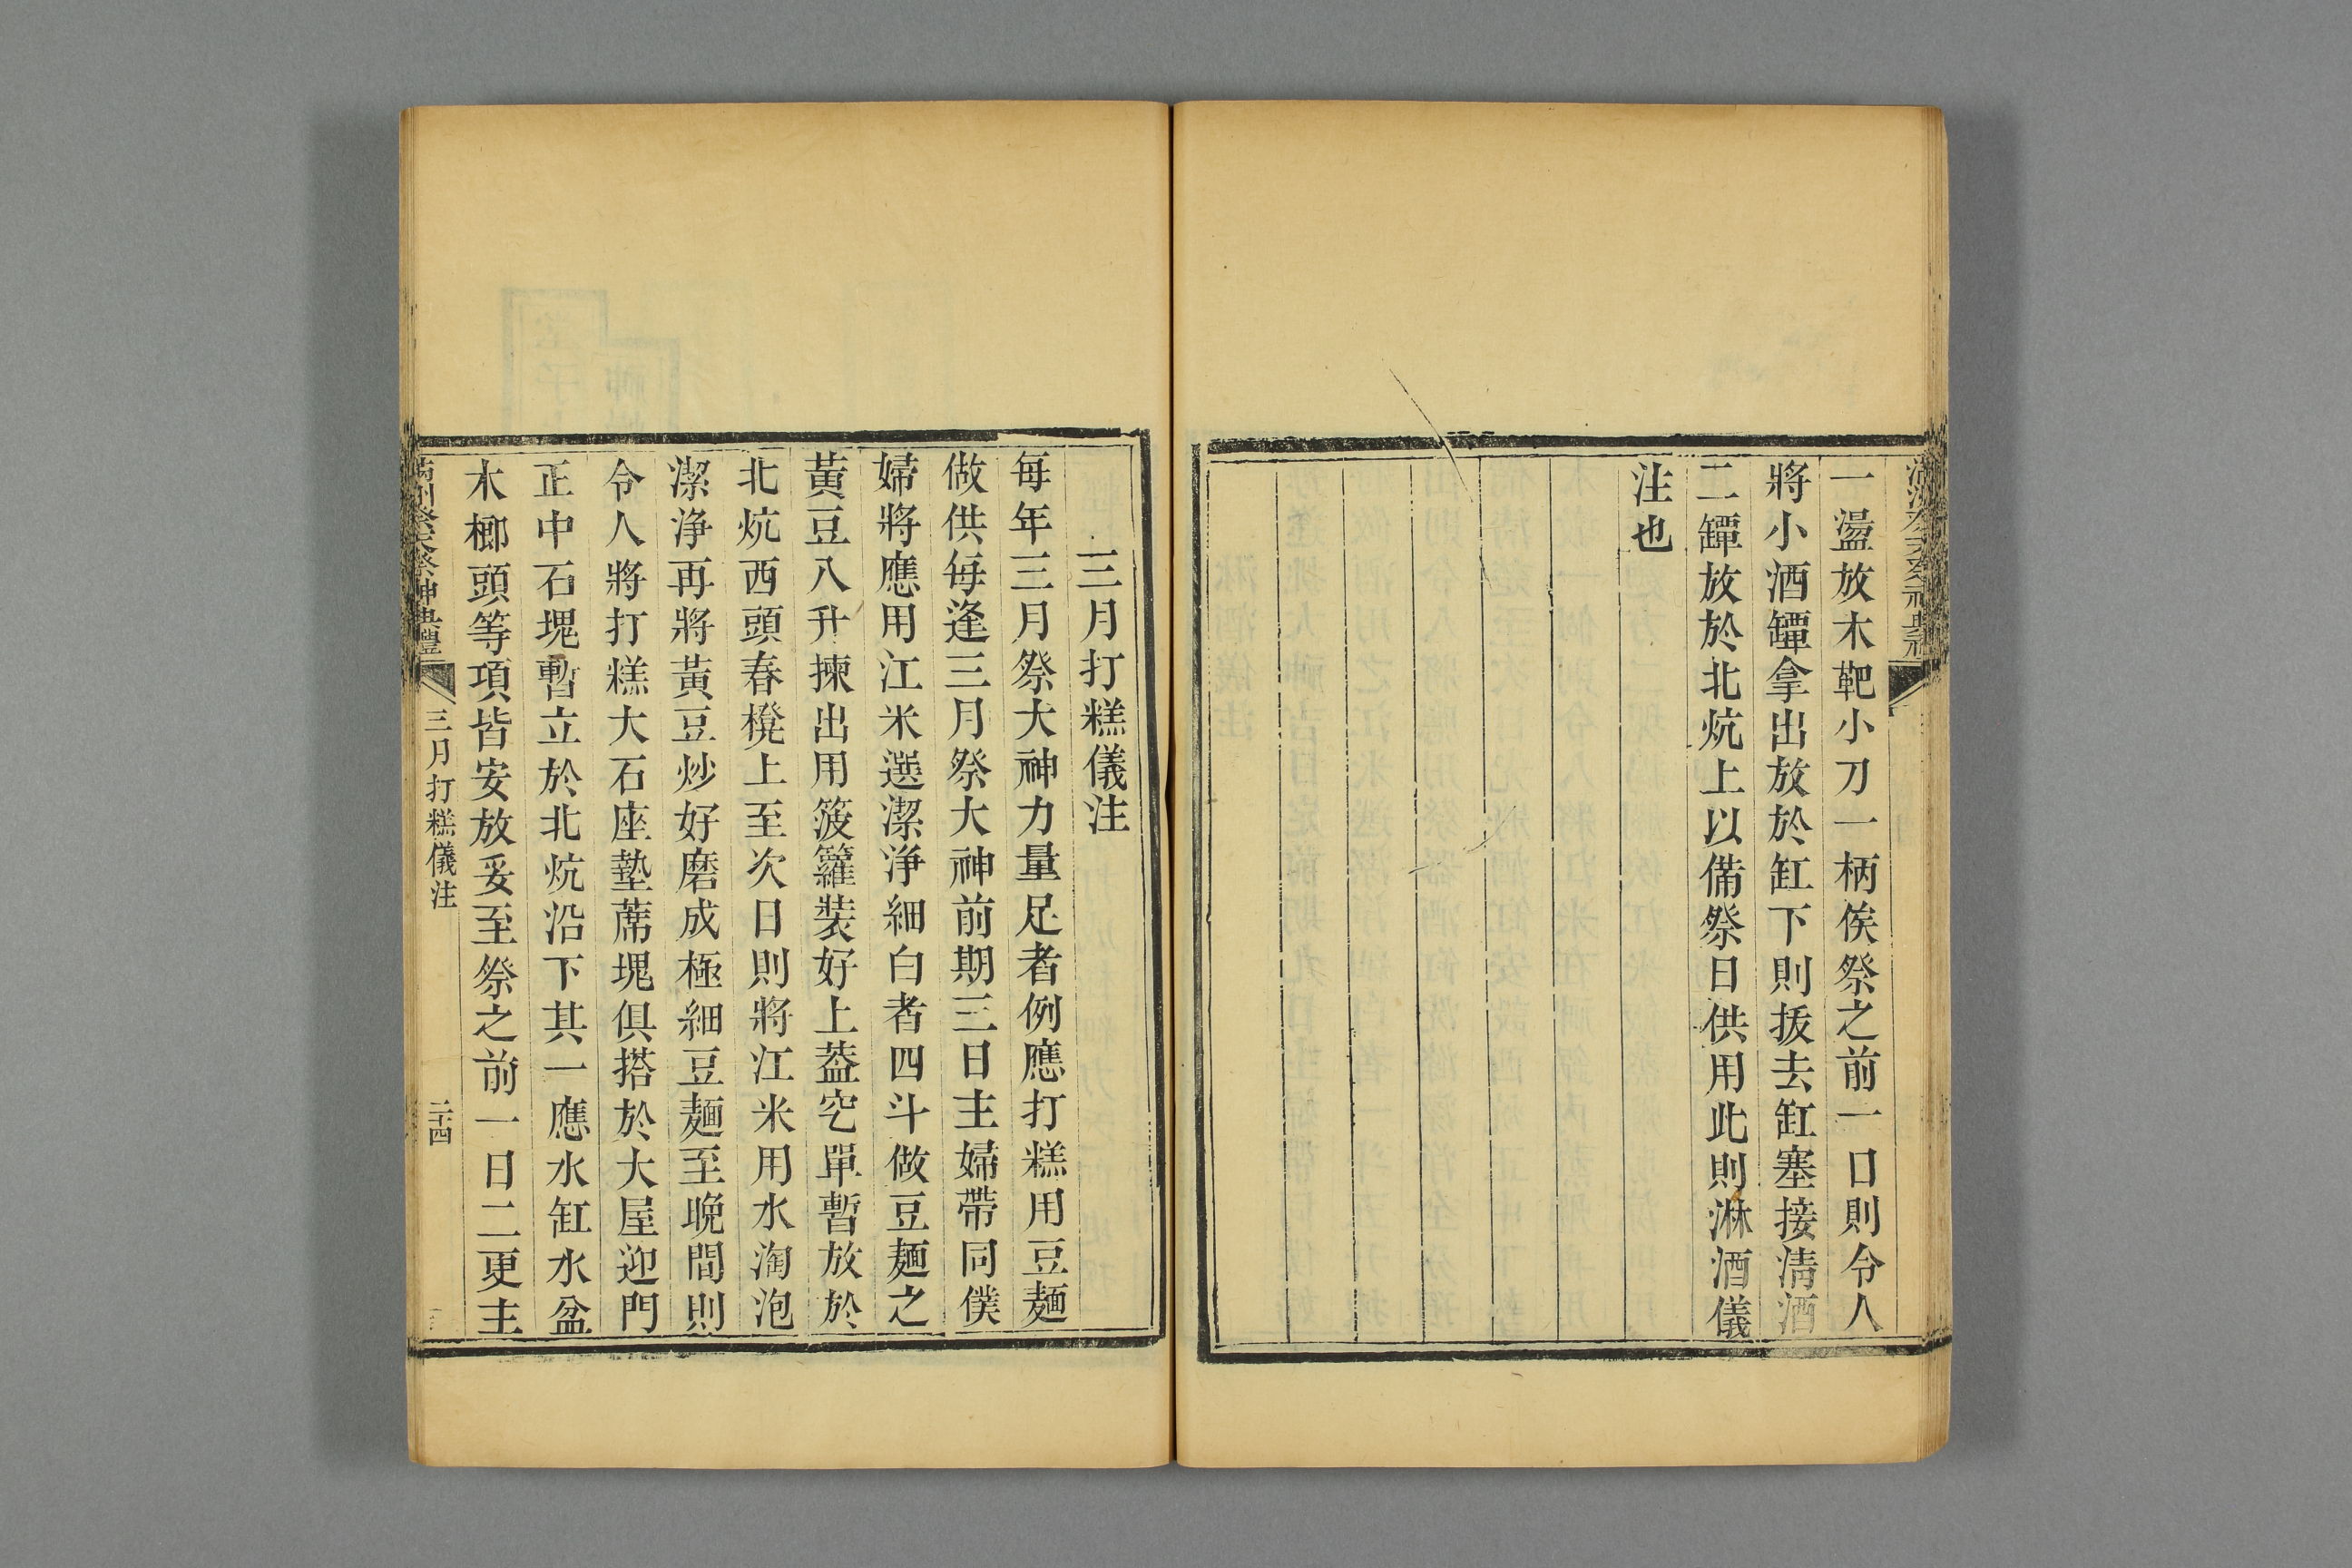 一盪放木靶小刀一柄俟祭之前一日則令人
將小酒罈拿出放於缸下則拔去缸塞接清酒
二罈放於北炕上以備祭日供用此則淋酒儀
注也
三月打糕儀注
每年三月祭大神力量足者例應打糕用豆麺
做供每逢三月祭大神前期三日主婦帶同僕
婦將應用江米選潔净細白者四斗做豆麺之
黃豆八升揀出用筊籮裝好上葢空單暫放於
北炕西頭春櫈上至次日則將江米用水淘泡
潔浄再將黃豆炒好磨成極細豆麺至晚間則
令人將打糕大石座墊蓆塊俱搭於大屋迎門
正中石塊暫立於北炕沿下其一應水缸水盆
木榔頭等項皆安放妥至祭之前一日二更主
滿洲祭天祭神典禮
三月打糕儀注
二十四